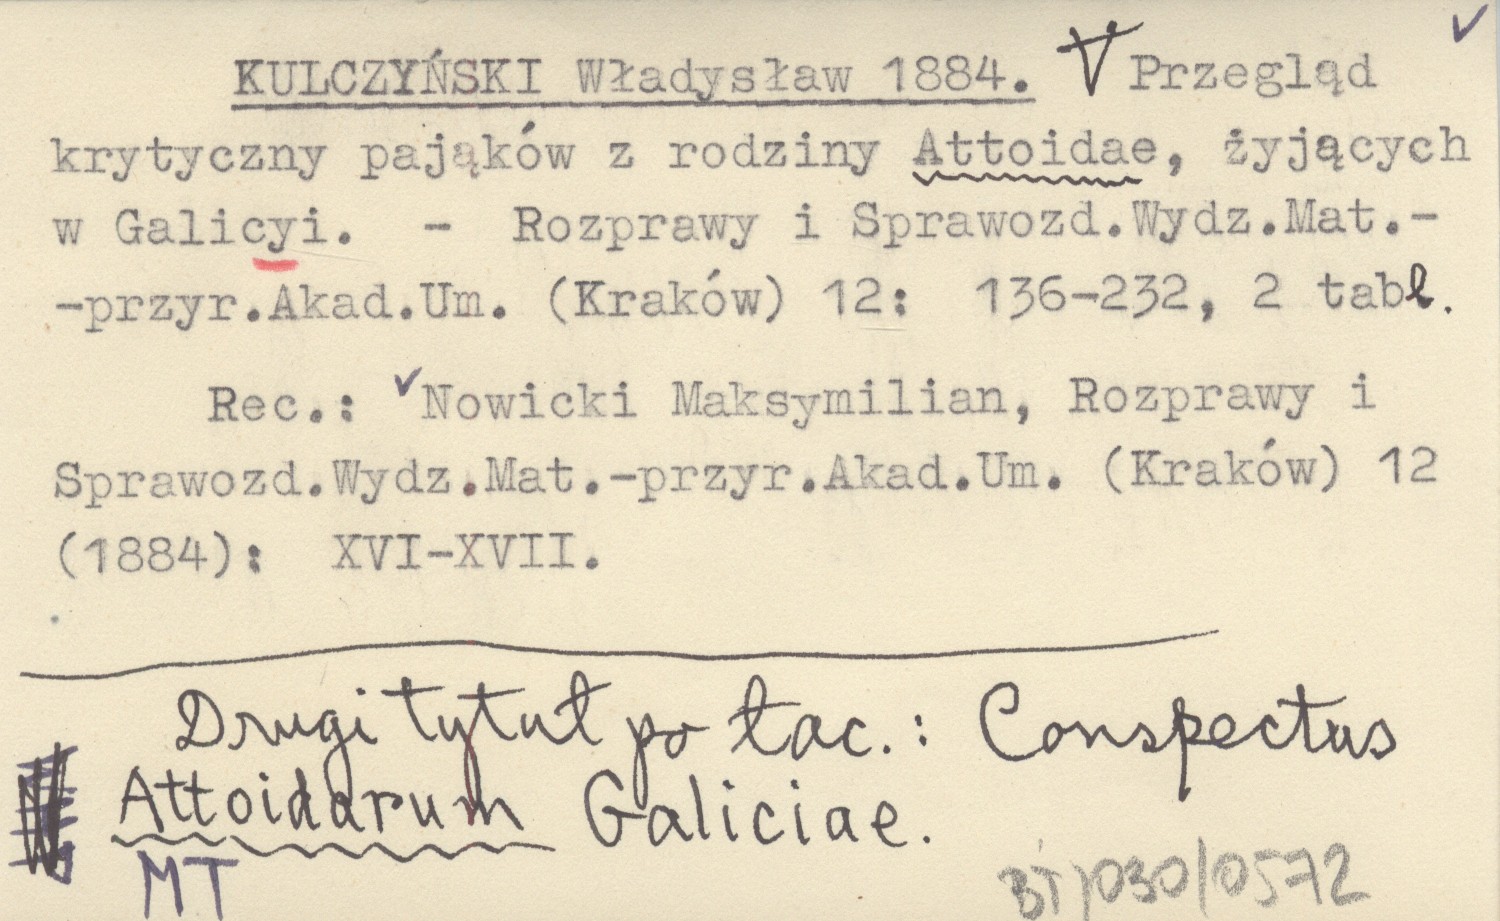 KULCZYŃSKI Władysław 1884. V Przegląd
krytyczny pająków z rodziny Attoidae, żyjących
w Galicyi. - Rozprawy i Sprawozd.Wydz.Mat.-
-przyr.Akad.Um. (Kraków) 12: 136-232, 2 tabl.
Rec.: Nowicki Maksymilian, Rozprawy i
Sprawozd.Wydz.Mat.-przyr.Akad.Um. (Kraków) 12
(1884): XVI-XVII.
Drugi tytuł po łac.: Conspectus
Attoidarum Galiciae.
MT
BT/030/0572